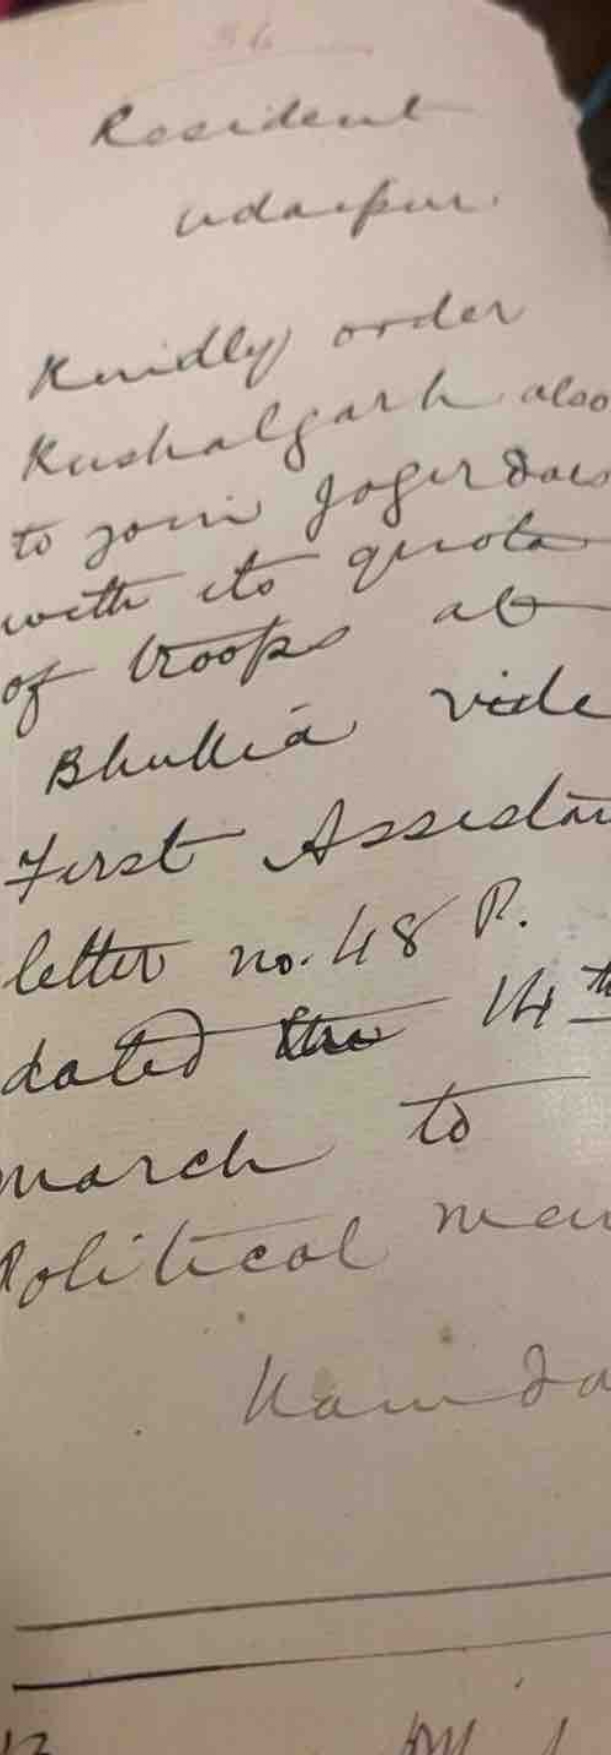 56
Resident
Udaipur.
Kindly order
Kushalgarh also
to join
with its quota
of troops at
Bhukia vide
First Assistan
letter no. 48 P.
dated the 14th
march to
Political
Kamda